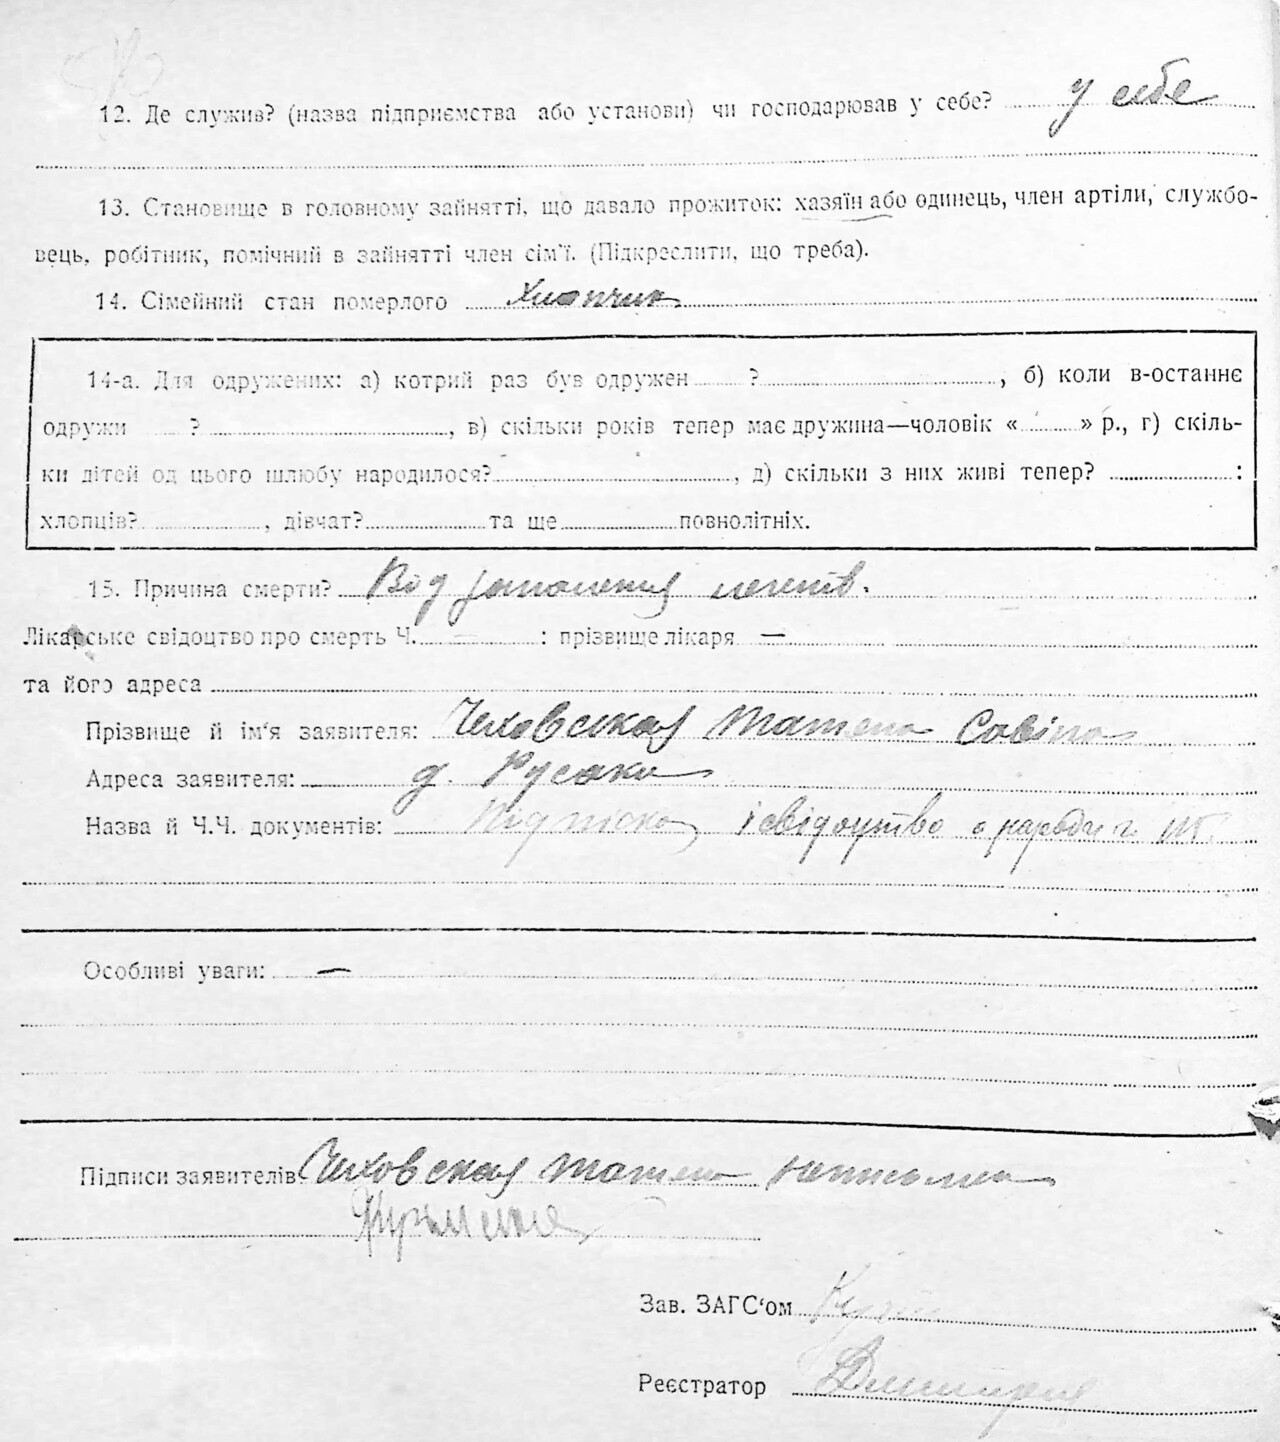 12. Де служив? (назва підприємства або установи) чи господарював у себе? у себе
13. Становище в головному зайнятті, що давало прожиток: хазяїн або одинець, член артіли, службо-
вець, робітник, помічний в зайнятті член сім'ї. (Підкреслити, що треба).
14. Сімейний стан померлого Хлопчик
14-а. Для одружених: а) котрий раз був одружен ? , б) коли в-останнє
одружи ? , в) скільки років тепер має дружина—чоловік « » р., г) скіль-
ки дітей од цього шлюбу народилося? , д) скільки з них живі тепер? :
хлопців? , дівчат? та ще повнолітніх.
15. Причина смерти? Від запаленя легенів.
Лікарське свідоцтво про смерть Ч. — : прізвище лікаря —
та його адреса
Прізвище й ім'я заявителя: Чеховская Татена Савіна
Адреса заявителя: д. Русаки
Назва й Ч.Ч. документів: Підпіска і свідоцтво о
Особливі уваги: —
Підписи заявителів Чеховская Татена
Зав. ЗАГС'ом
Реєстратор